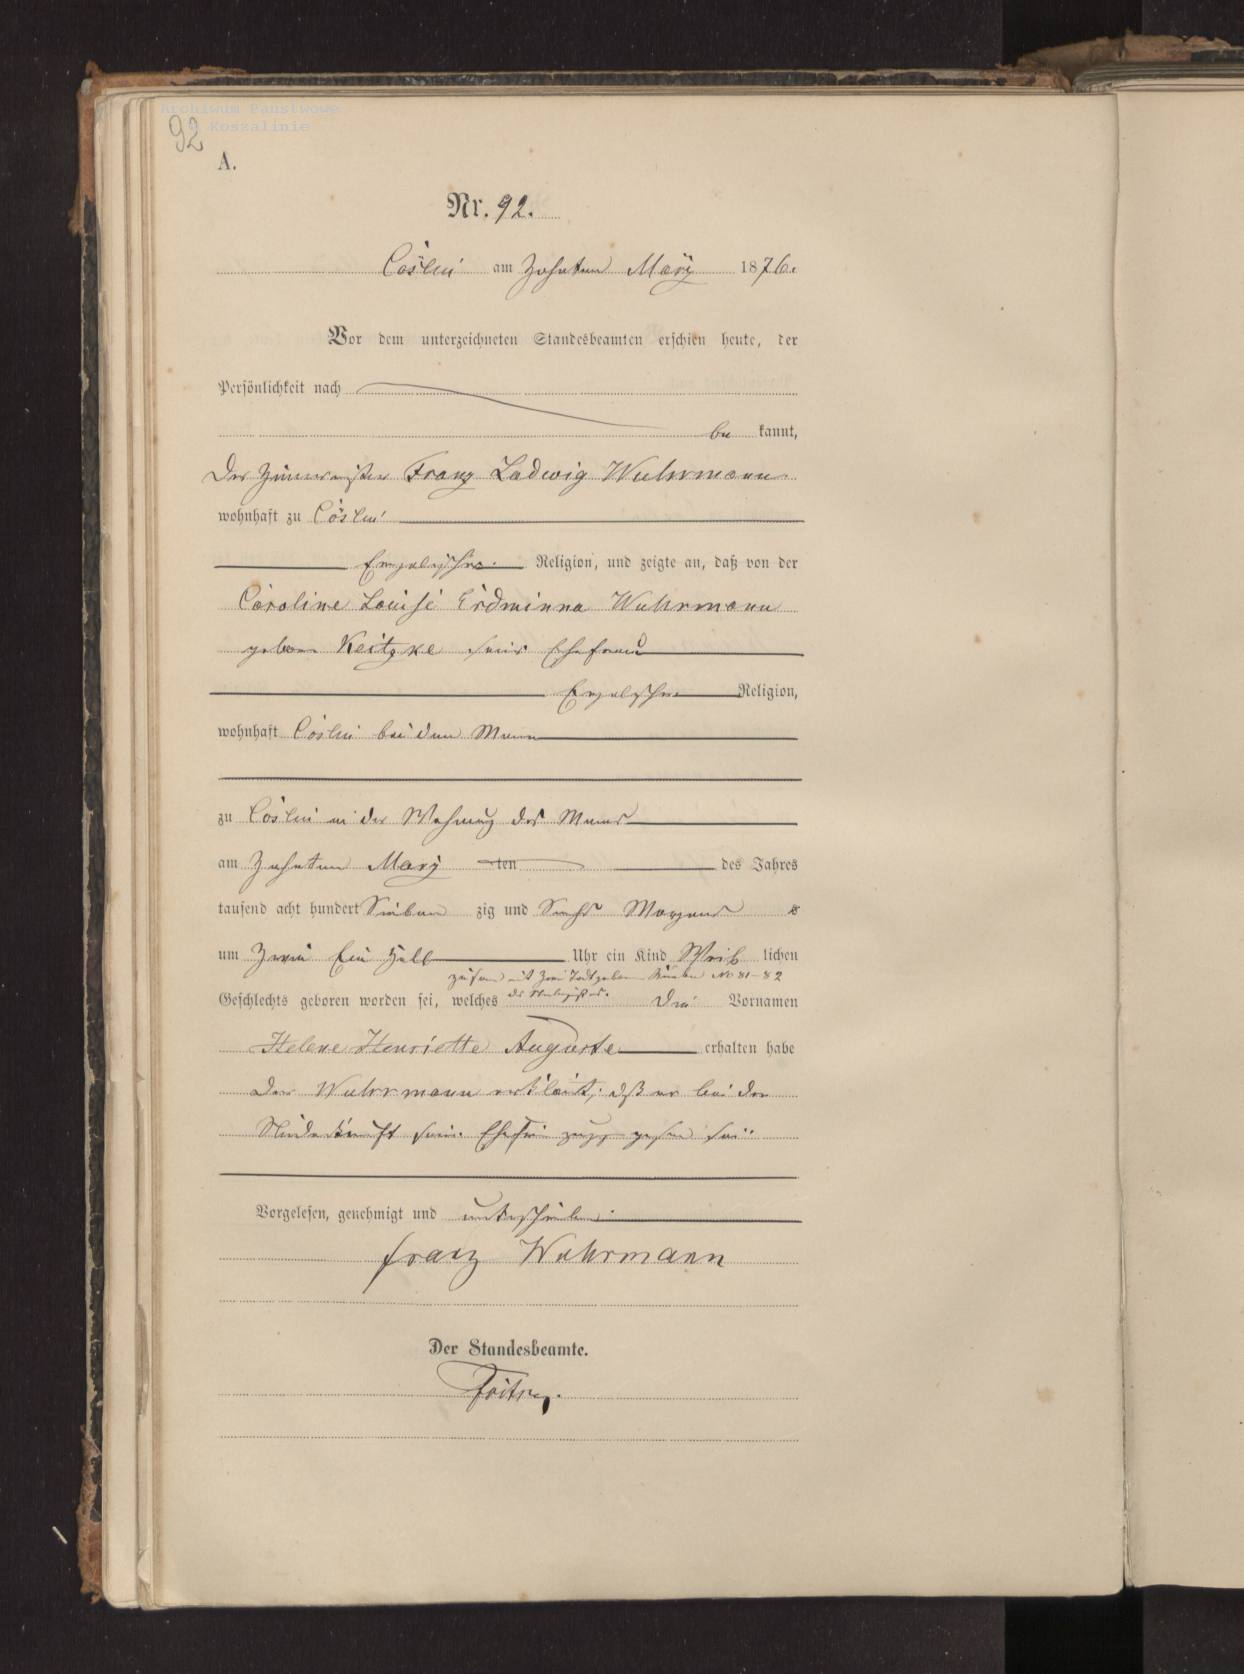 Archiwum Państwowe
w Koszalinie
92
A.
Nr. 92.
Cöslin am Zehnten März 1876.
Vor dem unterzeichneten Standesbeamten erschien heute, der
Persönlichkeit nach
be kannt,
Der Zimmermeister Franz Ludwig Wuhrmann
wohnhaft zu Cöslin
Evangelischer Religion, und zeigte an, daß von der
Caroline Louise Erdminna Wuhrmann
geborene Keitzke seiner Ehefrau
Evangelischer Religion,
wohnhaft Cöslin bei dem Mann
zu Cöslin in der Wohnung des Mannes
am Zehnten März ten des Jahres
tausend acht hundert Sieben zig und Sechs Morgens
um Zwei Ein halb Uhr ein Kind Weib lichen
zusammen mit zwei Knaben No 81-82
Geschlechts geboren worden sei, welches die Vornamen
Helene Henriette Auguste erhalten habe
Der Wuhrmann erklärt, daß er bei der
Niederkunft seiner Ehefrau zugegen gewesen sei
Vorgelesen, genehmigt und unterschrieben
Franz Wuhrmann
Der Standesbeamte.